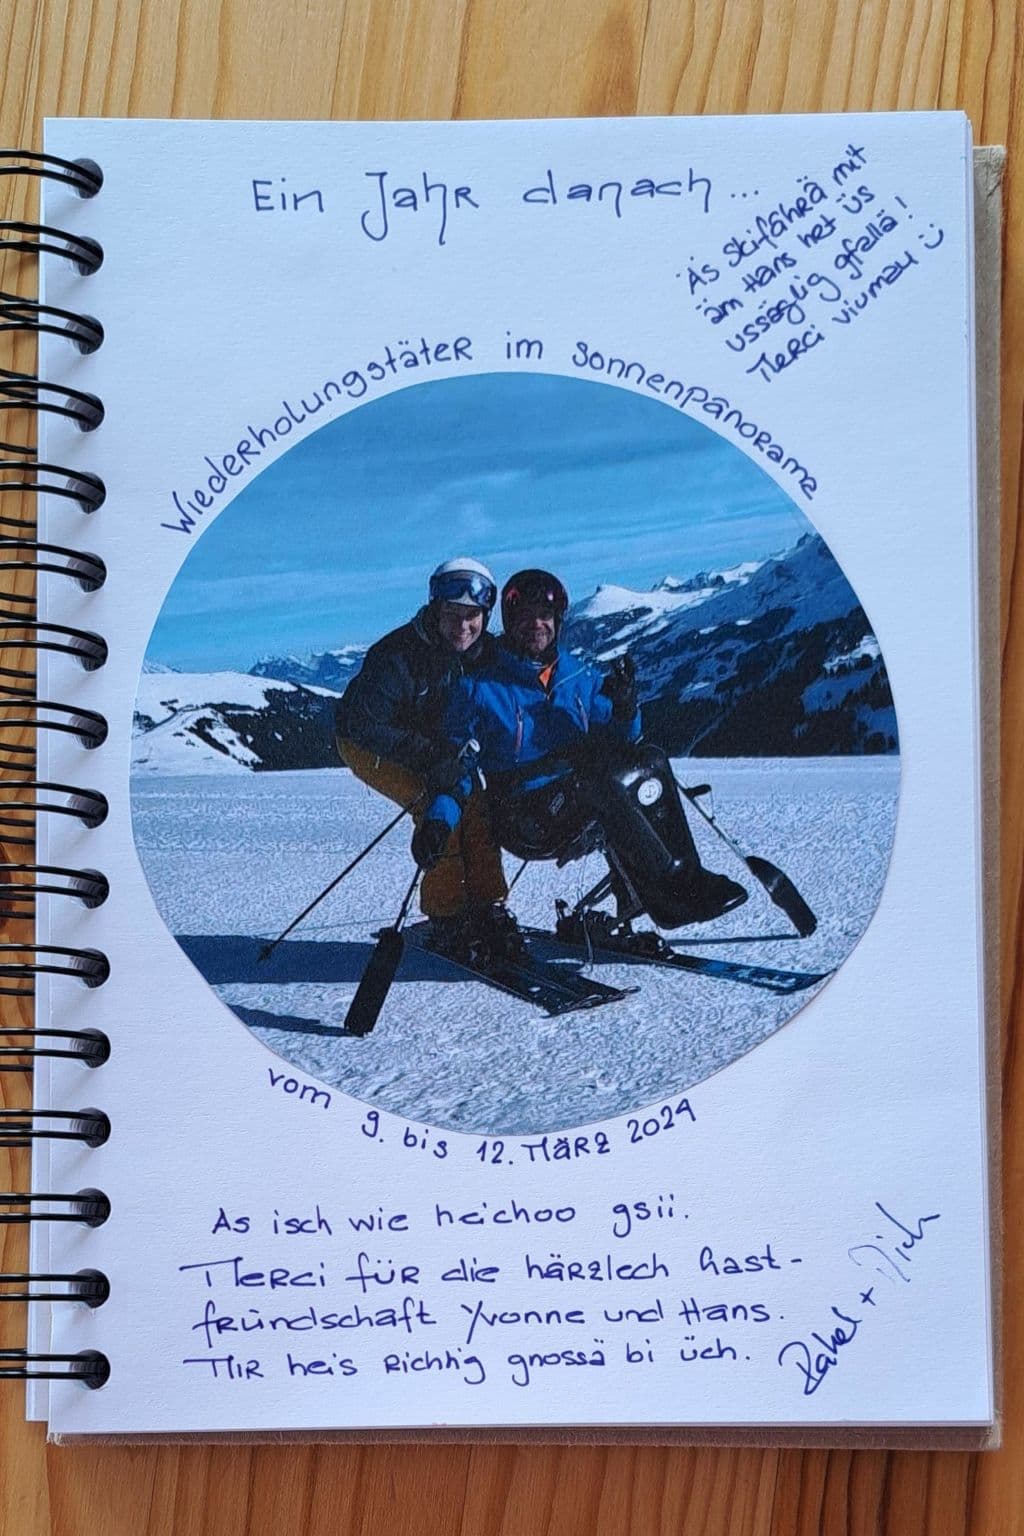 Ein Jahr danach...
Äs Skifährä mit
äm Hans het üs
ussäglig gfallä!
Merci viumau :)
Wiederholungstäter im Sonnenpanorama
vom 9. bis 12. März 2024
As isch wie heichoo gsii.
Merci für die härzlech Gast-
fründschaft Yvonne und Hans.
Mir heis richtig gnossä bi üch.
Rahel +